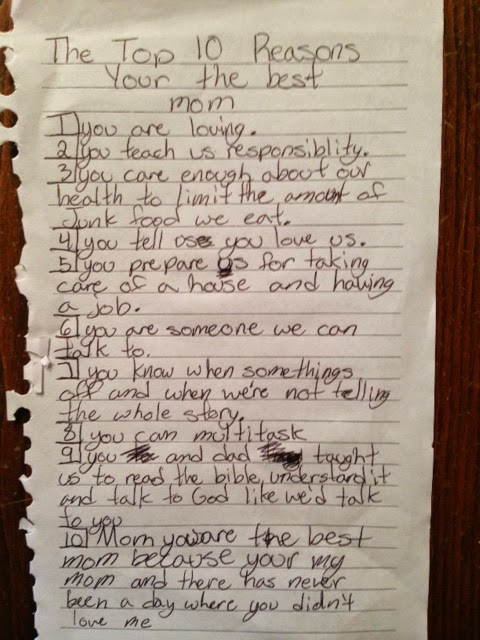 The Top 10 Reasons
Your the best
mom
1] you are loving.
2] you teach us responsiblity.
3] you care enough about our
health to limit the amount of
Junk food we eat.
4] you tell us you love us.
5] you prepare us for taking
care of a house and having
a job.
6] you are someone we can
talk to.
7] you know when somethings
off and when we're not telling
the whole story.
8] you can multitask
9] you and dad taught
us to read the bible, understand it
and talk to God like we'd talk
to you
10] Mom you are the best
mom because your my
mom and there has never
been a day where you didn't
love me